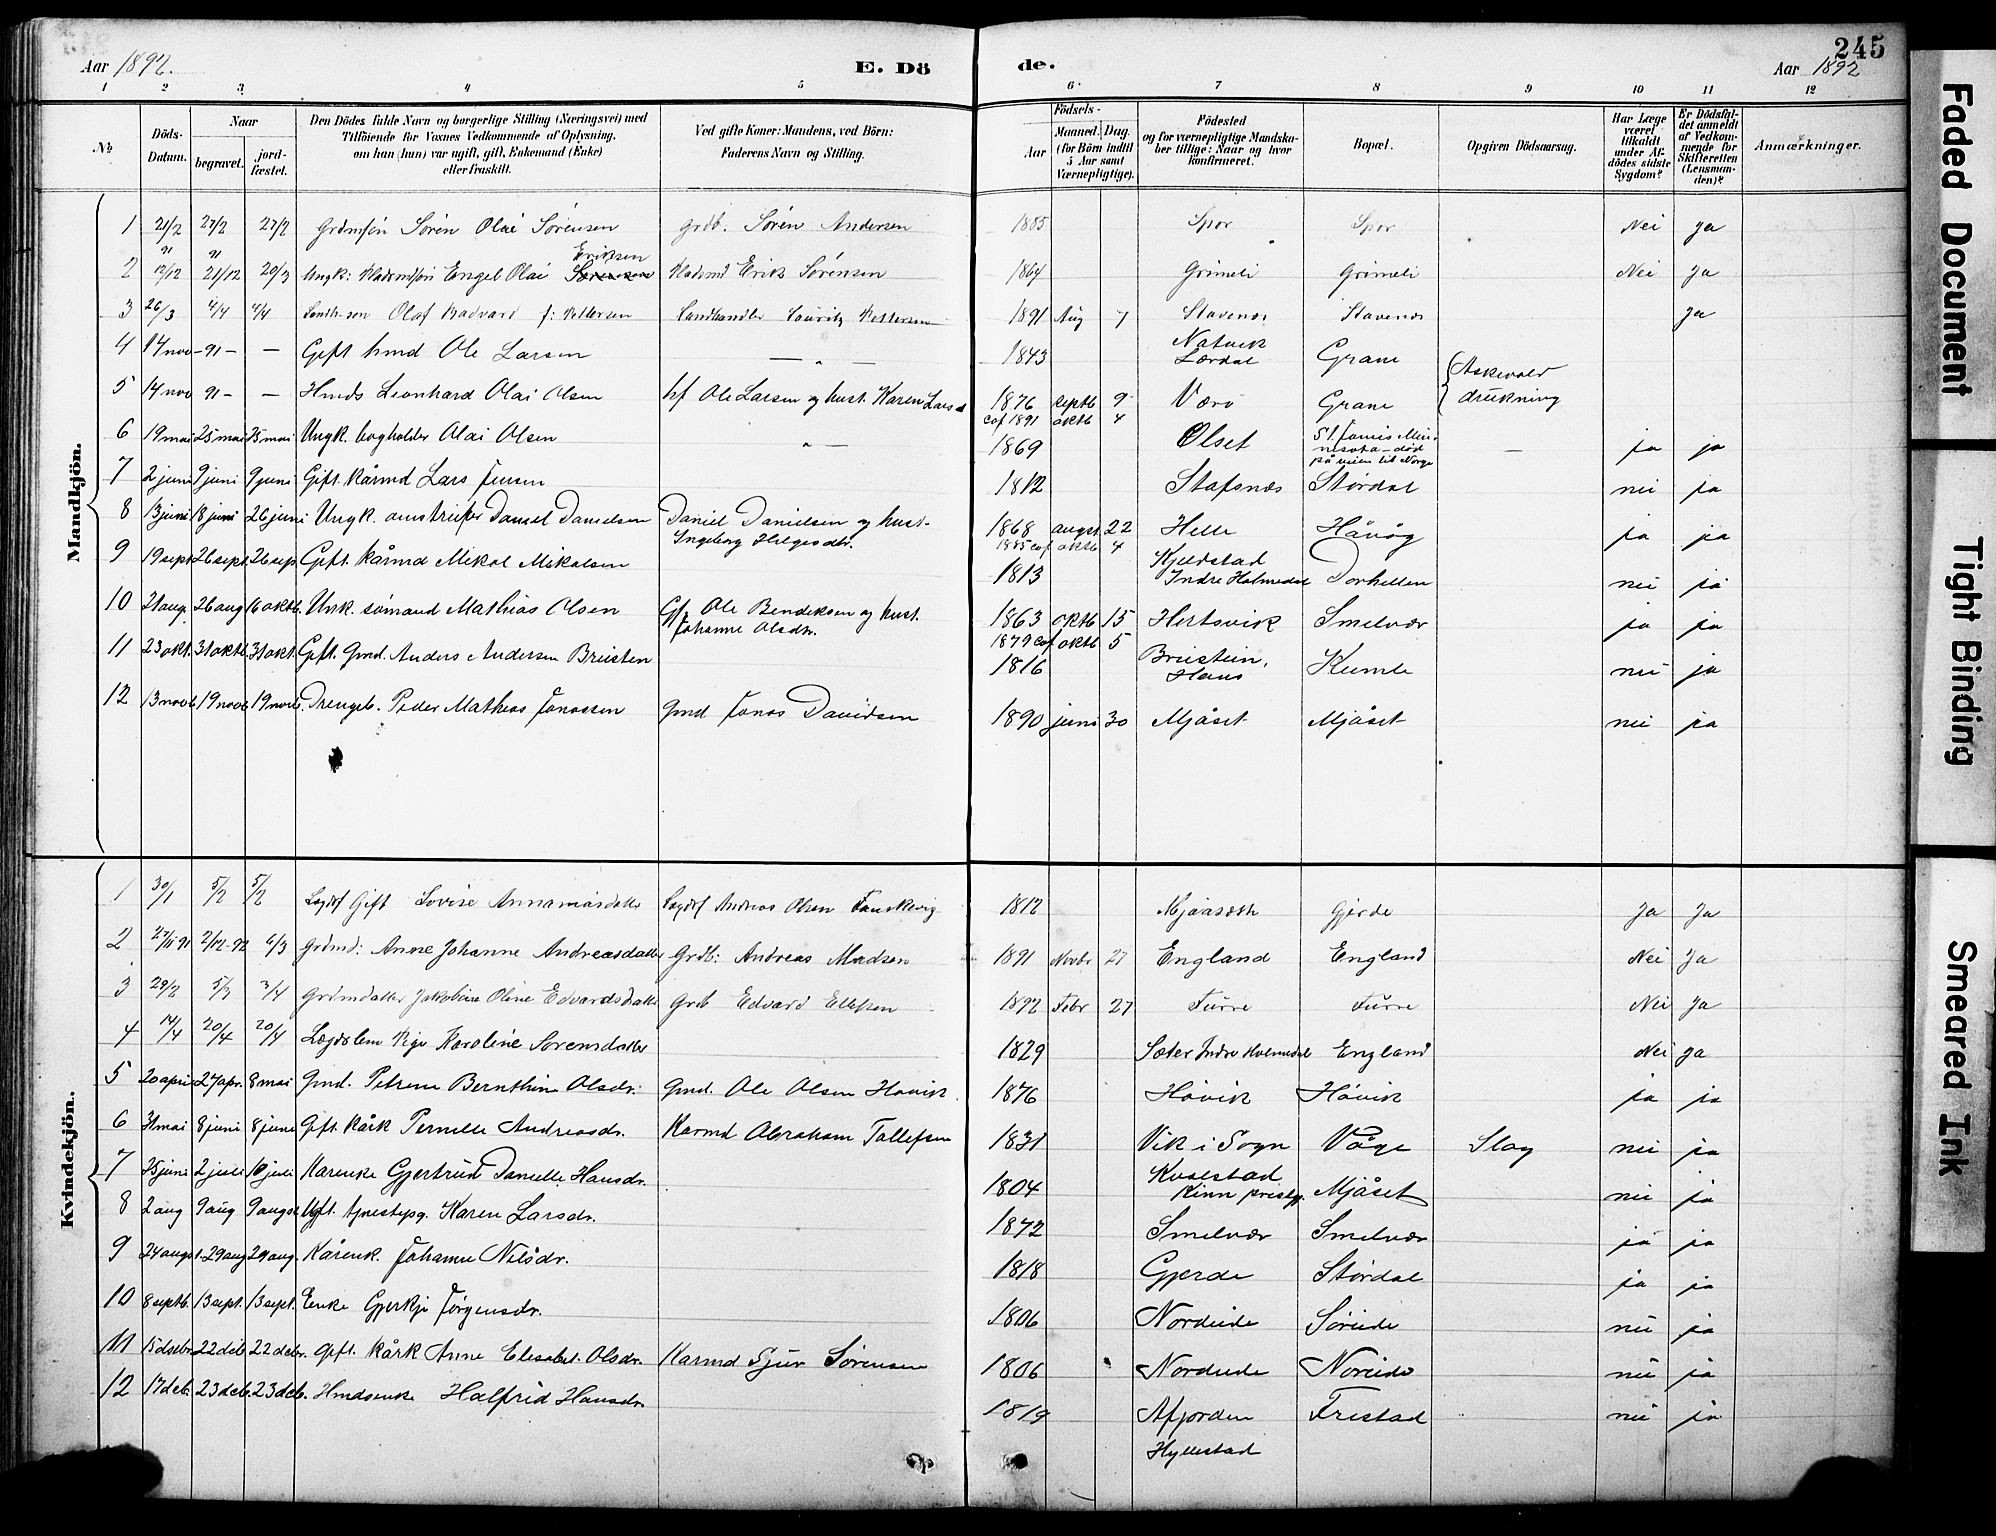 245
Aar 1892.
E. Dö
de.
Aar 1892
1 2 3 4 5 6 7 8 9 10 11 12
№
Döds-Datum.
Naar
begravet.
jordfæstet.
Den Dödes fulde Navn og borgerlige Stilling (Næringsvei) med Tilföiende for Voxnes Vedkommende af Oplysning, om han (hun) var ugift, gift, Enkemand (Enke) eller fraskilt.
Ved gifte Koner: Mandens, ved Börn: Faderens Navn og Stilling.
Födsels-
Aar
Maaned. Dag.
(for Börn indtil 5 Aar samt Værnepligtige).
Födested og for værnepligtige Mandskaber tillige: Naar og hvor konfirmeret.
Bopæl.
Opgiven Dödsaarsag.
Har Læge været tilkaldt under Afdödes sidste Sygdom?
Er Dödsfaldet anmeldt af Vedkommende for Skifteretten (Lensmanden)?
Anmærkninger.
Mandkjön.
1 21/2 27/2 27/2 Grdmsön Sörén Olai Sörensen Grdb. Sörén Andersen 1885 Spor Spor Nei Ja
2 91 12/12 91 21/12 20/3 Ungk: Engel Olai Eriksen Erik Sörensen 1864 Grimeli Grimeli Nei Ja
3 26/3 4/4 4/4 Olaf f: Pettersen Landhandler Lauritz Pettersen 1891 Aug 7 Stavenes Stavenes Ja
4 14 nov -91- — Gift hmd Ole Larsen — " — 1843 Natvik Lærdal Grane
5 14 nov 91- — Hmds Leonhard Olai Olsen hf Ole Larsen og hust. Karen Larsd 1876 septb 9 cof 1891 oktb 4 Værö Grane Askevold drukning
6 19 mai 25 mai 25 mai Ungk. bogholder Olai Olsen " — 1869 Olset St. Minnesota - död på veien til Norge — ja ja
7 2 juni 9 juni 9 juni Gift. kårmd Lars Jensen 1812 Stafsnes Stórdal nei ja
8 13 juni 18 juni 26 juni Ungk. Daniel Danielsen Daniel Danielsen og hust. Ingeborg Helgesdtr. 1868 augst 22 1885 cof oktb 4 Helle Håvåg ja ja
9 19 sept 26 sept. 26 sep. Gift. kårmd Mikal Mikalsen 1813 Kjelstad Indre Holmedal Dorhellen nei ja
10 21 aug. 26 aug 16 oktb. Unk. sömand Mathias Olsen Gf. Ole Bendiksen og hust. Johanne Olsdtr. 1863 oktb 15 1879 cof oktb 5 Hertsvik Smelvær ja ja
11 23 okt. 31 oktb 31 okt. Gift. Gmd. Anders Andersen Breisten 1816 Breistein, Haus Kumle nei ja
12 13 novb 19 novb 19 novb. Drengeb. Peder Mathias Jonassen Gmd Jonas Davidsen 1890 juni 30 Mjåset Mjåset nei ja
Kvindekjön.
1 30/1 5/2 5/2 Gift Lovise Annaniasdatter Andreas Olsen 1812 Mjaaseth Gjerde Ja Ja
2 27/11 91 2/12-92 6/3 Grdmd: Anne Johanne Andreasdatter Grdb: Andreas Madsen 1891 Novbr 27 England England Nei Ja
3 29/2 5/3 3/4 Grdmdatter Jakobine Oline Edvardsdatter Grdb Edvard Ellefsen 1892 Febr 27 Furre Furre Nei Ja
4 14/4 20/4 20/4 Lægdslem Pige Karoline Sörensdatter 1829 Sæter Indre Holmedal England Nei Ja
5 20 april 27 apr. 8 mai Gmd. Petrine Bernthine Olsdr. Gmd. Ole Olsen Håvik 1876 Håvik Håvik ja ja
6 31 mai 8 juni 8 juni Gift. kårk Pernille Andreasdr. Karmd Abraham Tollefsen 1831 Vik i Sogn Våge Slag nei ja
7 25 juni 2 juli 10 juli Karenke Gjertrud Danielle Hansdr. 1804 Kvalstad Kinn Mjåset nei ja
8 2 aug 9 aug 9 augst Ugft. tjenestepg. Karen Larsdr. 1872 Smelvær Smelvær ja ja
9 24 augst. 29 aug 29 aug. Kårenk. Johanne Nilsdr. 1818 Gjerde Stórdal ja ja
10 8 septb. 13 sept. 13 sept. Enke Gjerkje Jörgensdr. 1806 Nordeide Söreide nei ja
11 15 dsebr. 22 deb 22 debr. Gift. kårk Anne Elesabet. Olsdr. Karmd Sjur Sörensen 1806 Nordeide Noreide nei ja
12 17 deb. 23 deb. 23 deb. Hmdsenke Halfrid Hansdr. 1819 Afjorden Hyllestad Fristad nei ja
Faded Document
Tight Binding
Smeared Ink